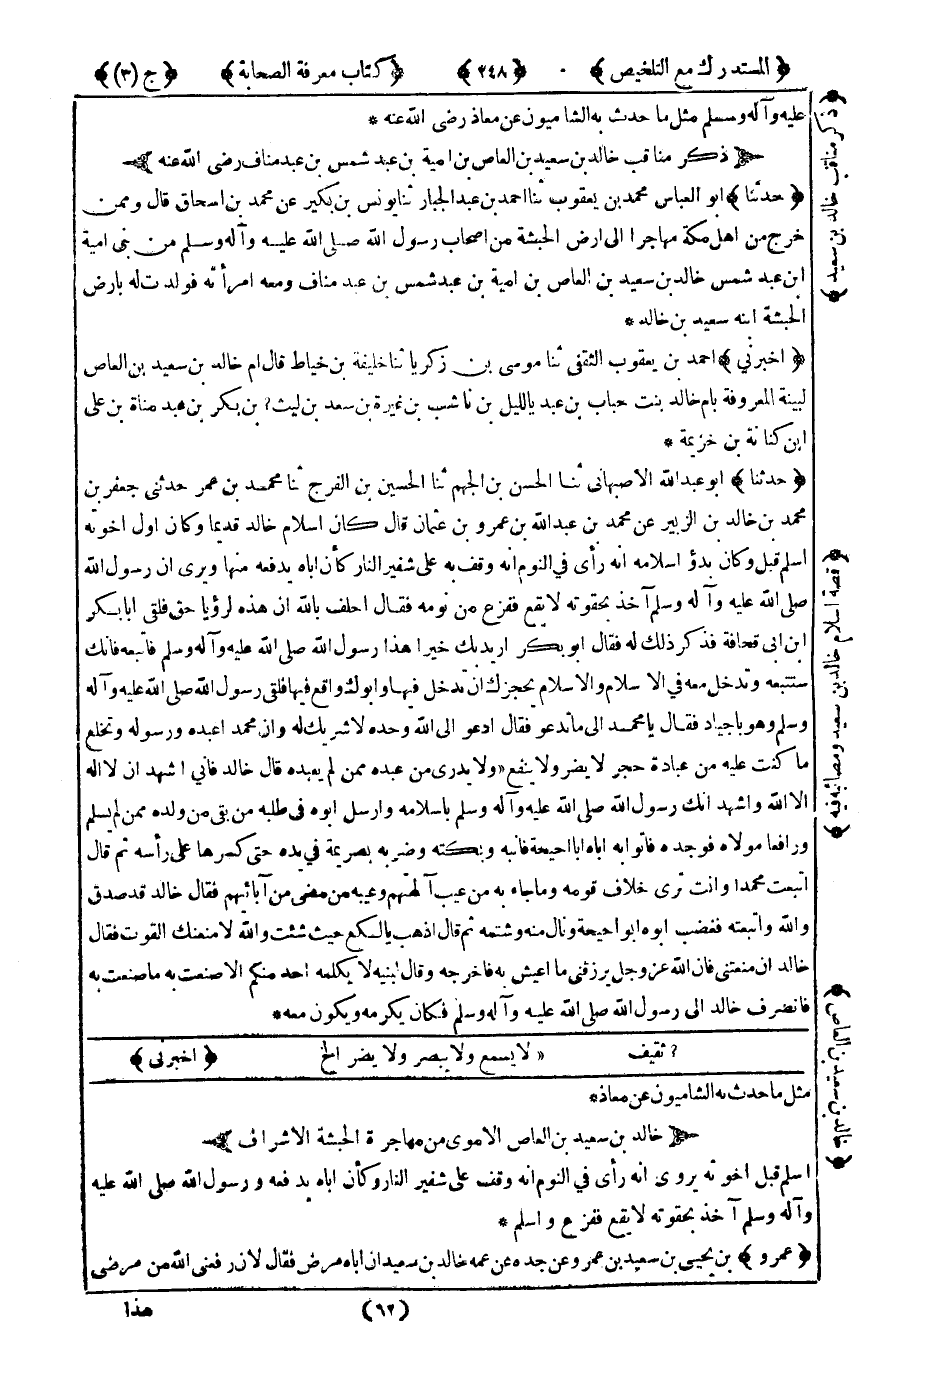 ﴿ المستدرك مع التلخيص ﴾ ﴿ ٢٤٨ ﴾ ﴿ كتاب معرفة الصحابة ﴾ ﴿ ج (٣) ﴾
عليه وآله وسلم مثل ما حدث به الشاميون عن معاذ رضى الله عنه *
ذكر مناقب خالد بن سعيد بن العاص بن امية بن عبد شمس بن عبد مناف رضى الله عنه
﴿ حدثنا ﴾ ابو العباس محمد بن يعقوب ثنا احمد بن عبد الجبار ثنا يونس بن بكير عن محمد بن اسحاق قال وممن
خرج من اهل مكة مهاجرا الى ارض الحبشة من اصحاب رسول الله صلى الله عليه وآله وسلم من بنى امية
ابن عبد شمس خالد بن سعيد بن العاص بن امية بن عبد شمس بن عبد مناف ومعه امرأته فولدت له بارض
الحبشة ابنه سعيد بن خالد *
﴿ اخبرنى ﴾ احمد بن يعقوب الثقفى ثنا موسى بن زكريا ثنا خليفة بن خياط قال ام خالد بن سعيد بن العاص
لبينة المعروفة بام خالد بنت حباب بن عبد ياليل بن ناشب بن غيرة بن سعد بن ليث ? بن بكر بن عبد مناة بن على
ابن كنانة بن خزيمة *
﴿ حدثنا ﴾ ابو عبد الله الاصبهانى ثنا الحسن بن الجهم ثنا الحسين بن الفرج ثنا محمد بن عمر حدثنى جعفر بن
محمد بن خالد بن الزبير عن محمد بن عبد الله بن عمرو بن عثمان قال كان اسلام خالد قديما وكان اول اخوته
اسلم قبل وكان بدؤ اسلامه انه رأى فى النوم انه وقف به على شفير النار كأن اباه يدفعه منها ويرى ان رسول الله
صلى الله عليه وآله وسلم آخذ بحقوته لا يقع ففزع من نومه فقال احلف بالله ان هذه لرؤيا حق فلقى ابا بكر
ابن ابى قحافة فذكر ذلك له فقال ابو بكر اريد بك خيرا هذا رسول الله صلى الله عليه وآله وسلم فاتبعه فانك
ستتبعه وتدخل معه فى الاسلام والاسلام يحجزك ان تدخل فيها وابوك واقع فيها فلقى رسول الله صلى الله عليه وآله
وسلم وهو باجياد فقال يا محمد الى ما تدعو فقال ادعو الى الله وحده لا شريك له وان محمد اعبده ورسوله وتخلع
ما كنت عليه من عبادة حجر لا يضر ولا ينفع « ولا يدرى من عبده ممن لم يعبده قال خالد فانى اشهد ان لا اله
الا الله واشهد انك رسول الله صلى الله عليه وآله وسلم باسلامه وارسل ابوه فى طلبه من بقى من ولده ممن لم يسلم
ورافعا مولاه فوجده فاتوا به اباه ابا احيحة فانبه وبكته وضربه بصريمة فى يده حتى كسرها على رأسه ثم قال
اتبعت محمدا وانت ترى خلاف قومه وما جاء به من عيب آلهتهم وعيبه من مضى من آبائهم فقال خالد قد صدق
والله واتبعته فغضب ابوه ابو احيحة ونال منه وشتمه ثم قال اذهب يا لكع حيث شئت والله لا منعنك القوت فقال
خالد ان منعتنى فان الله عز وجل يرزقنى ما اعيش به فاخرجه وقال لبنيه لا يكلمه احد منكم الا صنعت به ما صنعت به
فانصرف خالد الى رسول الله صلى الله عليه وآله وسلم فكان يكرمه ويكون معه *
? ثقيف « لا يسمع ولا يبصر ولا يضر الخ ﴿ اخبرنى ﴾
مثل ما حدث به الشاميون عن معاذ *
خالد بن سعيد بن العاص الاموى من مهاجرة الحبشة الاشراف
اسلم قبل اخوته يروى انه رأى فى النوم انه وقف على شفير النار وكأن اباه يدفعه ورسول الله صلى الله عليه
وآله وسلم آخذ بحقوته لا يقع ففزع واسلم *
﴿ عمرو ﴾ بن يحيى بن سعيد بن عمرو عن جده عن عمه خالد بن سعيد ان اباه مرض فقال لان رفعنى الله من مرضى
(٦٢) هذا
﴿ ذكر مناقب خالد بن سعيد ﴾
﴿ قصة اسلام خالد بن سعيد ومصائبه فيه ﴾
﴿ خالد بن سعيد بن العاص ﴾